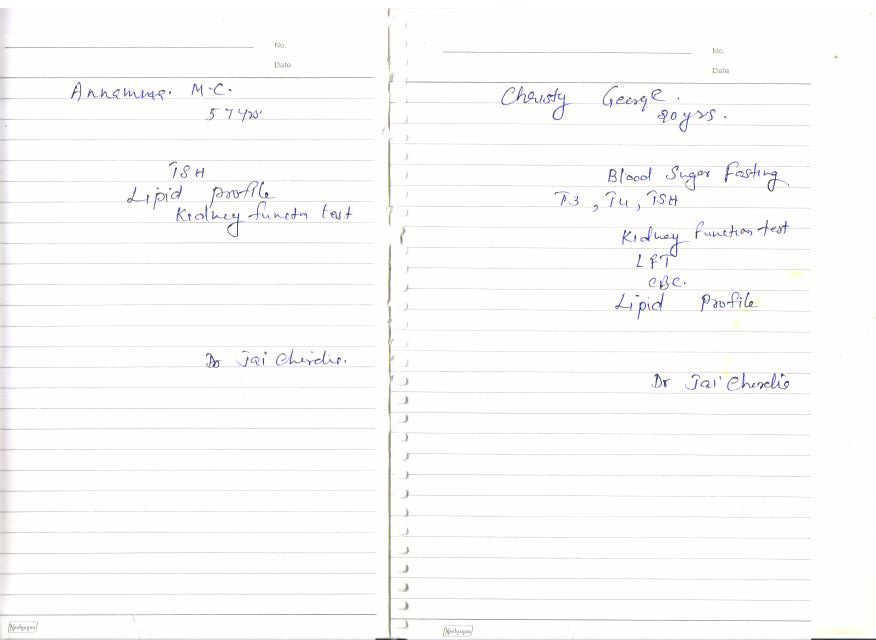 No.
Date
Annamma. M.C.
57 yrs
TSH
Lipid profile
Kidney functn test
Dr Jai Cherdie.
Navlagagan
No.
Date
Christy George.
20 yrs.
Blood Sugar Fasting
T3, T4, TSH
Kidney Function test
LFT
CBC.
Lipid Profile
Dr Jai Cherdie